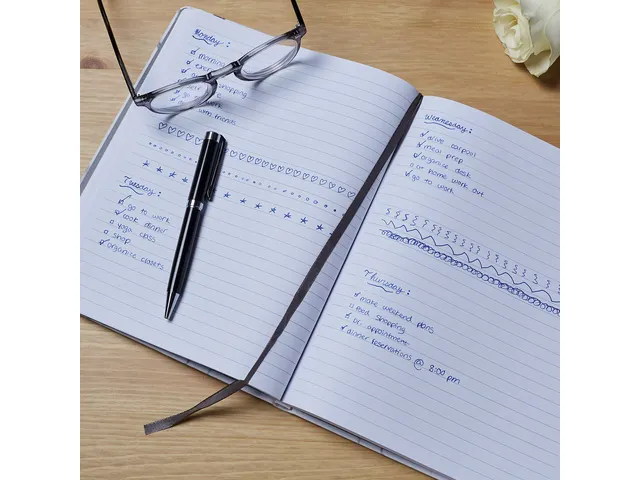 Monday:
morning
exer
shopping
go
work
with friends
Tuesday:
go to work
cook dinner
yoga class
shop
organise closets
Wednesday:
drive carpool
meal prep
organise desk
at home work out
go to work
Thursday:
make weekend plans
food shopping
dr. appointment
dinner reservations @ 8:00 pm